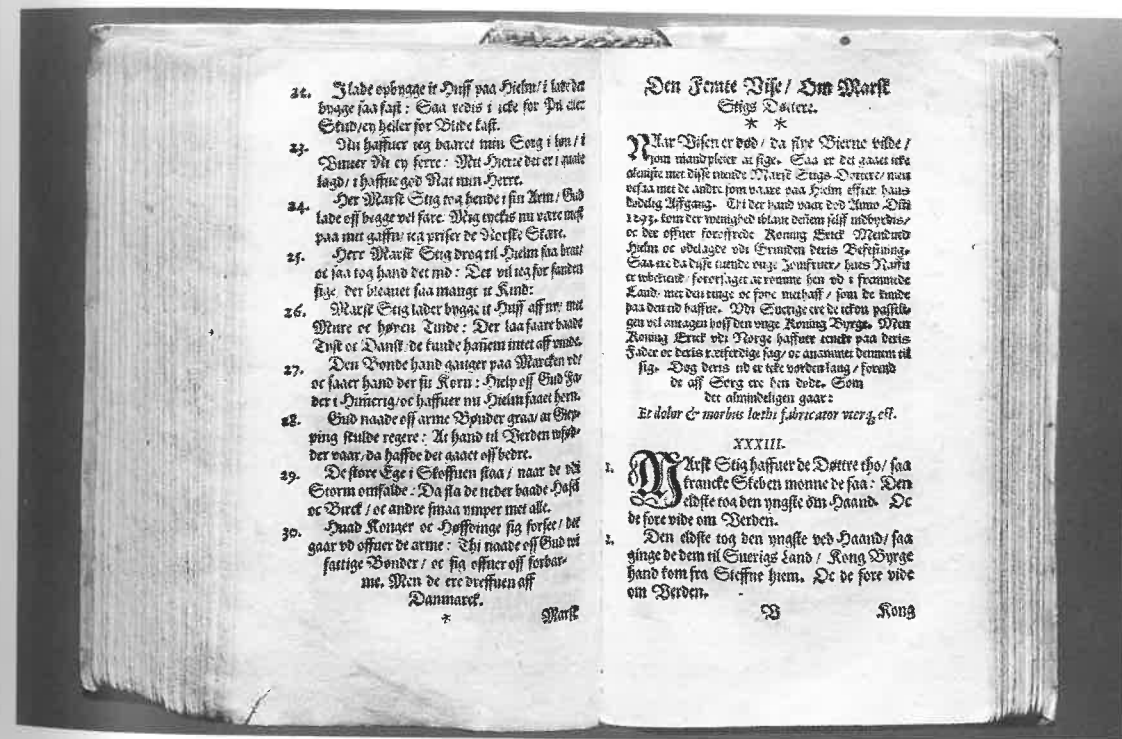 22. I lade opbygge it Huff paa Hielm / i lade det
bygge saa fast: Saa redis i icke for Pil eller
Skud / ey heller for Blide kast.
23. Nu haffuer ieg baaret min Sorg i løn / i
Vinter Ni oc ferre: Mit Hierte det er i quale
lagd / i haffue god Nat min Herre.
24. Her Marsk Stig tog hende i sin Arm / Gud
lade off begge vel fare. Mig tyckis nu være mest
paa met gaffn / ieg priser de Norske Skare.
25. Herr Marsk Stig drog til Hielm saa brat /
oc saa tog hand det ind: Det vil ieg for sanden
sige / der bleguet saa mangt it Kind:
26. Marsk Stig lader bygge it Huff aff ny / met
Mure oc høyen Tinde: Der laa faare baade
Tysk oc Dansk / de kunde hañem intet aff vinde.
27. Den Bonde hand ganger paa Marcken vd /
oc saaer hand der sit Korn: Hielp off Gud Fa-
der i Himerig / oc haffuer nu Hielm faaet horn.
28. Gud naade off arme Bønder graa / at Glep-
ping skulde regere: At hand til Verden vfød-
der vaar / da haffde det gaaet off bedre.
29. De store Ege i Skoffuen staa / naar de vdi
Storm omfalde: Da sla de neder baade Hassel
oc Birck / oc andre smaa ymper met alle.
30. Huad Konger oc Høffdinge sig forseet / det
gaar vd offuer de arme: Thi naade off Gud wi
fattige Bønder / oc sig offuer off forbar-
me. Men de ere dreffuen aff
Danmarck.
* Marsk
Den Femte Vise / Om Marsk
Stigs Døttere.
* *
NAar Visen er død / da flye Bierne vilde /
som mand pleier at sige. Saa er det gaaet icke
aleniste met disse tuende Marsk Stigs Dottere / men
ocsaa met de andre som vaare paa Hielm effter hans
dødelig Affgang. Thi der hand vaar død Anno Dñi
1293. kom der wenighed iblant dennem selff indbyrdis /
oc der offuer foroffrede Koning Erick Menduid
Hielm oc ødelagde vdi Grunden deris Befestning.
Saa ere da disse tuende vnge Jomfruer / hues Naffn
er wbekiend / foraarsaget at romme hen vd i fremmede
Land / met den ringe oc fore methaff / som de kunde
paa den tid haffue. Vdi Suerige ere de ickon passeli-
gen vel antagen hoss den vnge Koning Byrge. Men
Koning Erick vdi Norge haffuer tenckt paa deris
Fader oc deris retferdige sag / oc anammet dennem til
sig. Dog deris tid er icke vorden lang / forend
de aff Sorg ere hen døde. Som
det almindeligen gaar:
Et dolor & morbus lœthi fabricator uterq; est.
XXXIII.
1. MArsk Stig haffuer de Døttre tho / saa
krancke Skeben monne de faa: Den
eldste tog den yngste om Haand. Oc
de fore vide om Verden.
2. Den eldste tog den yngste ved Haand / saa
ginge de dem til Suerigs Land / Kong Byrge
hand kom fra Steffne hiem. Oc de fore vide
om Verden.
V Kong